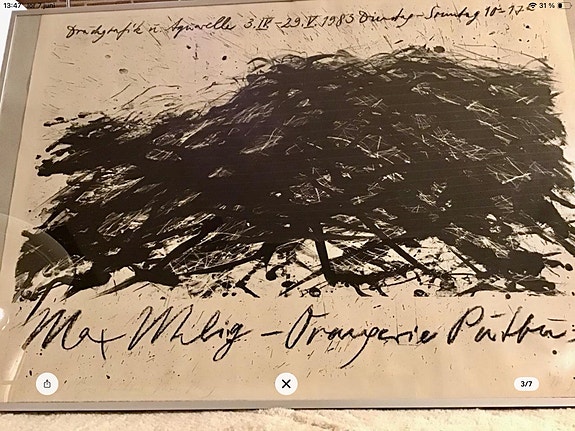 13:47
31 %
Druckgrafik u. Aquarelle 3.IV - 29.V.1983 Dienstag - Sonntag 10 - 17
Max Uhlig - Orangerie Putbus
3/7